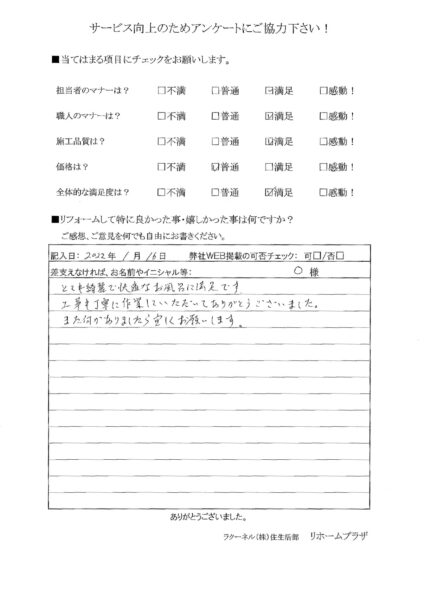 サービス向上のためアンケートにご協力下さい！
■当てはまる項目にチェックをお願いします。
担当者のマナーは？ □不満 □普通 ☑満足 □感動！
職人のマナーは？ □不満 □普通 ☑満足 □感動！
施工品質は？ □不満 □普通 ☑満足 □感動！
価格は？ □不満 ☑普通 □満足 □感動！
全体的な満足度は？ □不満 □普通 ☑満足 □感動！
■リフォームして特に良かった事・嬉しかった事は何ですか？
ご感想、ご意見を何でも自由にお書きください。
記入日：2022年 1月 16日 弊社WEB掲載の可否チェック： 可□/否□
差支えなければ、お名前やイニシャル等： ○ 様
とても綺麗で快適なお風呂に満足です
工事も丁寧に作業していただいてありがとうございました。
また何かありましたら宜しくお願いします。
ありがとうございました。
ラクーネル（株）住生活部 リホームプラザ